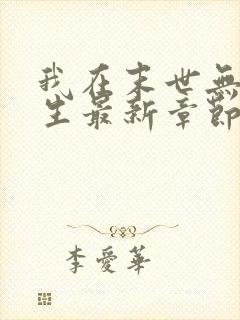 我在末世無
生最新章節
李愛華